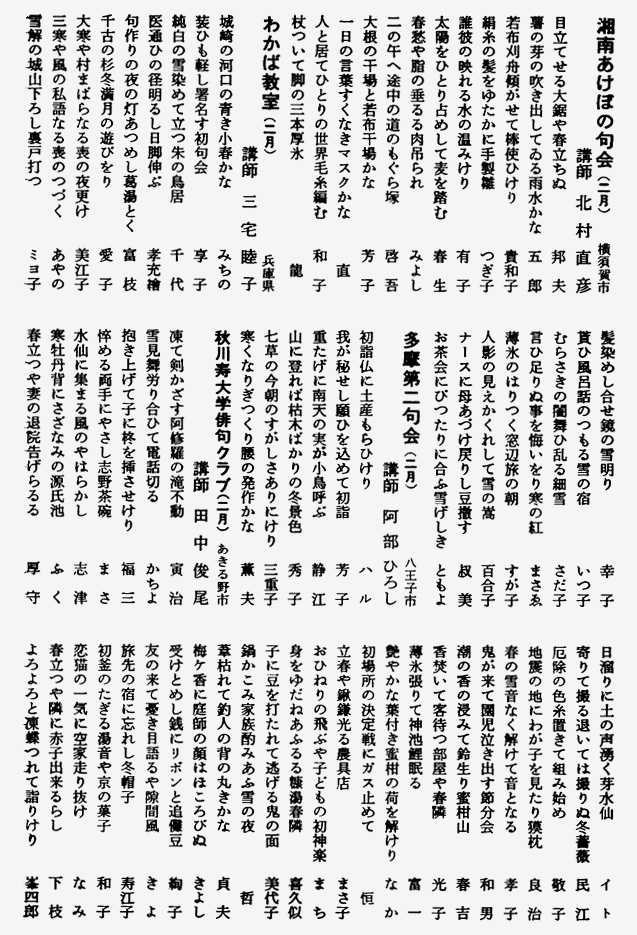 湘南あけぼの句会（二月）
横須賀市
講師 北村直彦
目立てせる大鋸や春立ちぬ 邦夫
薯の芽の吹き出してゐる雨水かな 五郎
若布刈舟傾がせて棒使ひけり 貴和子
絹糸の髪をゆたかに手製雛 つぎ子
誰彼の映れる水の温みけり 有子
太陽をひとり占めして麦を踏む 春生
春愁や脂の垂るる肉吊られ みよし
二の午へ途中の道のもぐら塚 啓吾
大根の干場と若布干場かな 芳子
一日の言葉すくなきマスクかな 直
人と居てひとりの世界毛糸編む 和子
杖ついて脚の三本厚氷 龍
わかば教室（二月）
兵庫県
講師 三宅睦子
城崎の河口の青き小春かな みちの
装ひも軽し署名す初句会 享子
純白の雪染めて立つ朱の鳥居 千代
医通ひの径明るし日脚伸ぶ 孝充檜
句作りの夜の灯あつめし葛湯とく 富枝
千古の杉冬満月の遊びをり 愛子
大寒や村まばらなる喪の夜更け 美江子
三寒や風の私語なる喪のつづく あやの
雪解の城山下ろし裏戸打つ ミヨ子
髪染めし合せ鏡の雪明り 幸子
貰ひ風呂話のつもる雪の宿 いつ子
むらさきの闇舞ひ乱る細雪 さだ子
言ひ足りぬ事を悔いをり寒の紅 まさゑ
薄氷のはりつく窓辺旅の朝 すが子
人影の見えかくれして雪の嵩 百合子
ナースに母あづけ戻りし豆撒す 叔美
お茶会にぴつたりに合ふ雪げしき ともよ
多摩第二句会（二月）
八王子市
講師 阿部ひろし
初詣仏に土産もらひけり ハル
我が秘せし願ひを込めて初詣 芳子
重たげに南天の実が小鳥呼ぶ 静江
山に登れば枯木ばかりの冬景色 秀子
七草の今朝のすがしさありにけり 三重子
寒くなりぎつくり腰の発作かな 薫夫
秋川寿大学俳句クラブ（二月）
あきる野市
講師 田中俊尾
凍て剣かざす阿修羅の滝不動 寅治
雪見舞労り合ひて電話切る かちよ
抱き上げて子に柊を挿させけり 福三
悴める両手にやさし志野茶碗 まさ
水仙に集まる風のやはらかし 志津
寒牡丹背にさざなみの源氏池 ふく
春立つや妻の退院告げらるる 厚守
日溜りに土の声湧く芽水仙 イト
寄りて撮る退いては撮りぬ冬薔薇 民江
厄除の色糸置きて組み始め 敬子
地震の地にわが子を見たり獏枕 良治
春の雪音なく解けて音となる 孝子
鬼が来て園児泣き出す節分会 和男
潮の香の浸みて鈴生り蜜柑山 春吉
香焚いて客待つ部屋や春隣 光子
薄氷張りて神池鯉眠る 富一
艶やかな葉付き蜜柑の荷を解けり なか
初場所の決定戦にガス止めて 恒
立春や鍬鎌光る農具店 まさ子
おひねりの飛ぶや子どもの初神楽 まち
身をゆだねあふるる檜湯春隣 喜久似
子に豆を打たれて逃げる鬼の面 美代子
鍋かこみ家族酌みあふ雪の夜 哲
葦枯れて釣人の背の丸きかな 貞夫
梅ケ香に庭師の顔はほころびぬ きよし
受けとめし銭にリボンと追儺豆 絢子
友の来て憂き目語るや隙間風 きよ
旅先の宿に忘れし冬帽子 寿江子
初釜のたぎる湯音や京の菓子 和子
恋猫の一気に空家走り抜け なみ
春立つや隣に赤子出来るらし 下枝
よろよろと凍蝶つれて詣りけり 峯四郎